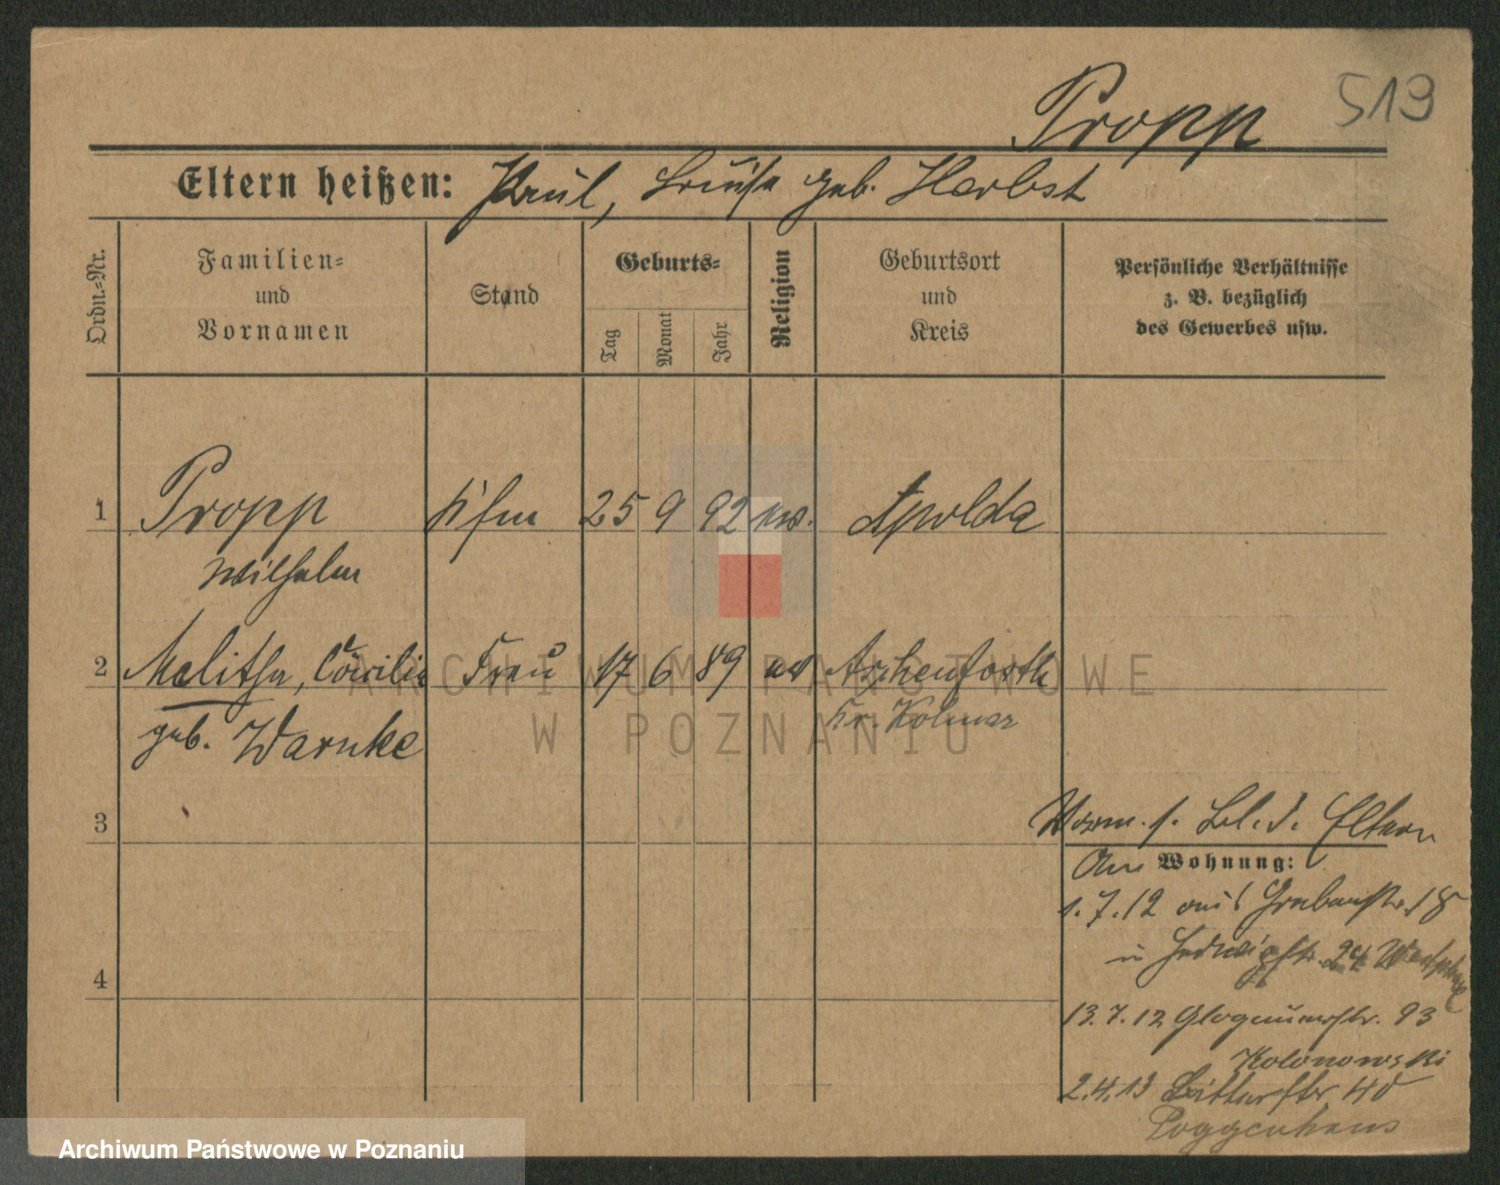 Propp 519
Eltern heißen: Paul, Luise geb. Herbst
Ordn.-Nr.
Familien-
und
Vornamen
Stand
Geburts-
Tag
Monat
Jahr
Religion
Geburtsort
und
Kreis
Persönliche Verhältnisse
z. B. bezüglich
des Gewerbes usw.
1 Propp Kfm 25 9 92 ev. Apolda
Wilhelm
2 Melitha, Cäcilie Frau 17 6 89 ev Aschenforth
geb. Warnke Kr. Kolmar
3
4
Vorm. s. Bl. d. Eltern
Wohnung:
1.7.12 aus Grabenstr. 18
n Hedwigstr. 24
13.7.12 Glogauerstr. 93
Kolonowski
2.4.13 40
Poggenhans
ARCHIWUM PAŃSTWOWE
W POZNANIU
Archiwum Państwowe w Poznaniu